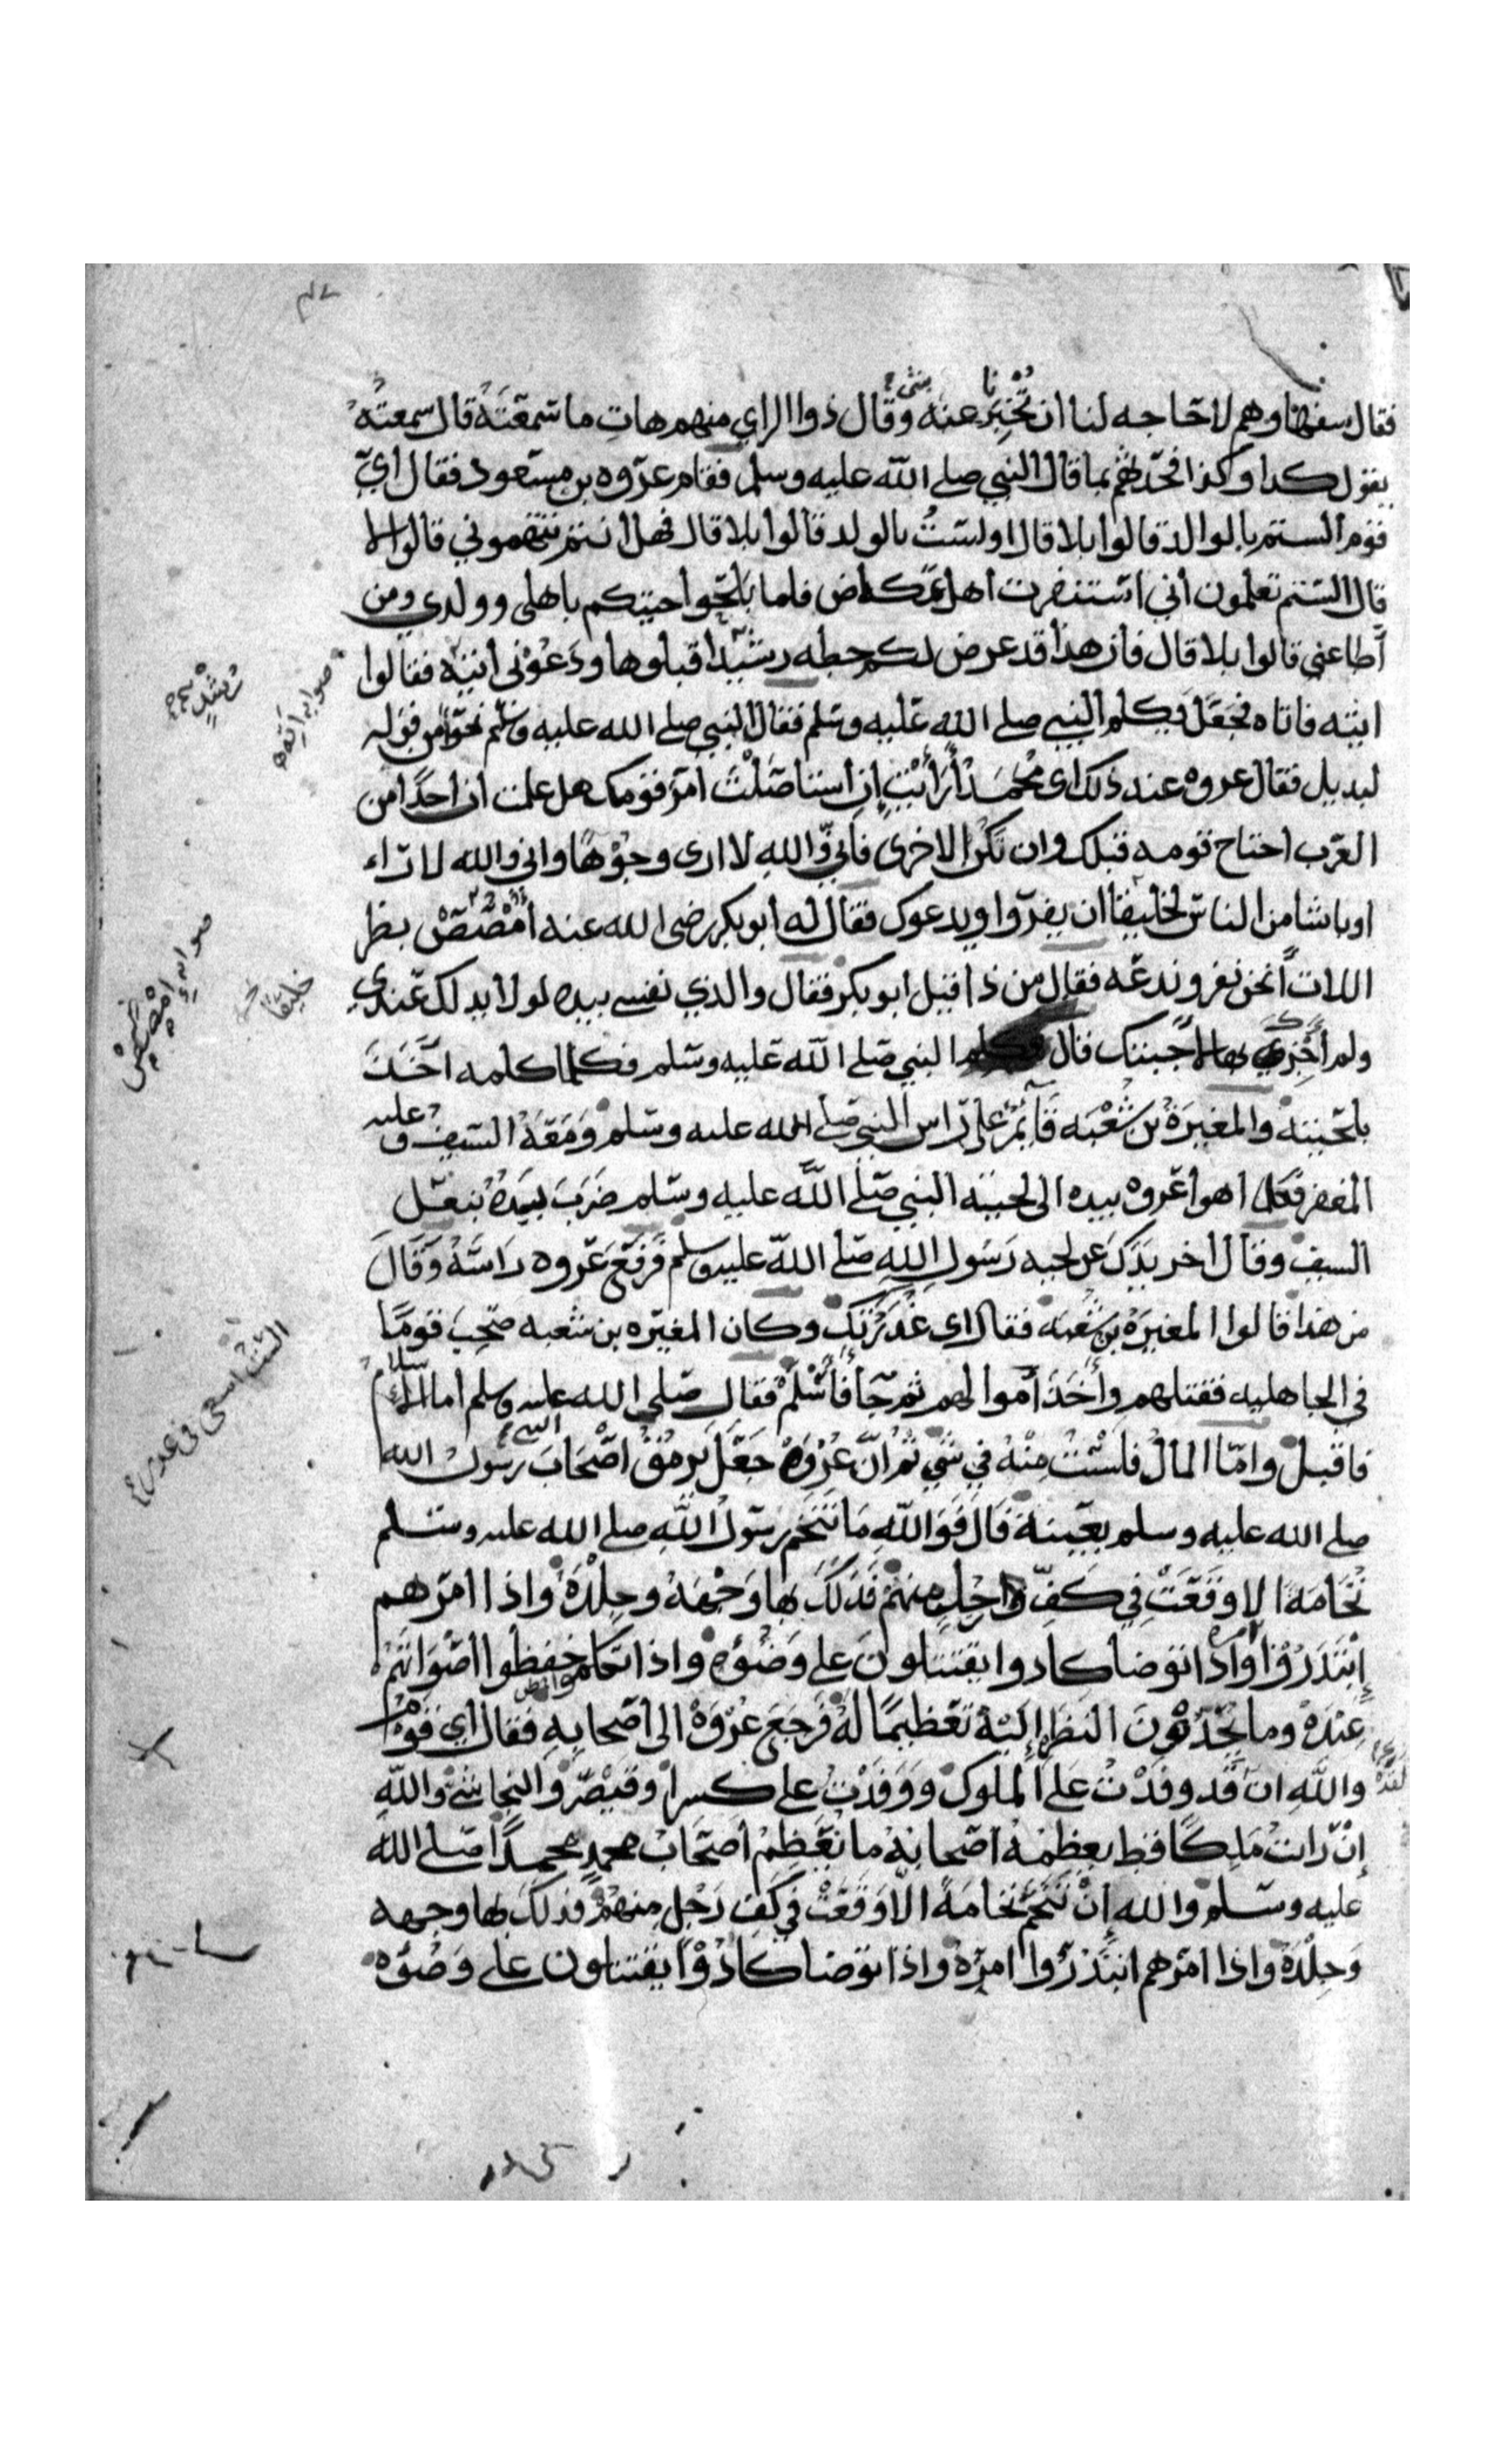 فقال سفهاوهم لا حاجه لنا ان تخبرنا عنه بشىء وقال ذوا الراي منهم هات ما سمعته قال سمعته
يقول كدا وكذا فحدثهم بما قال النبي صلى الله عليه وسلم فقام عروه بن مسعود فقال اي
قوم الستم بالوالد قالوا بلا قال اولست بالولد قالوا بلا قال فهل انتم تتهموني قالوا لا
قال الستم تعلمون اني استنفرت اهل عكاض فلما بلحوا جيتكم باهلى وولدي ومن
اطاعني قالوا بلا قال فان هذا قد عرض لكم خطه رشيدا اقبلوها ودعوني اتيه فقالوا
ايته فاتاه فجعل يكلم النبي صلى الله عليه وسلم فقال النبي صلى الله عليه وسلم نحوا من قوله
لبديل فقال عروه عند ذلك اى محمد أرأيت إن استاصلت امر قومك هل علمت ان احدا من
العرب اجتاح قومه قبلك وان تكن الاخرى فاني والله لا ارى وجوها واني والله لا راء
اوباشا من الناس لخليقا ان يفروا ويدعوك فقال له ابو بكر رضى الله عنه امصص بظر
اللات أنحن نفر وندعه فقال من ذا قيل ابو بكر فقال والذي نفسي بيده لولا يد لك عندي
ولم أجزك بها لاجبتك قال النبي صلى الله عليه وسلم فكلما كلمه اخذ
بلحيته والمغيرة بن شعبه قائم على راس النبي صلى الله عليه وسلم ومعه السيف وعليه
المغفر فكلما اهوا عروه بيده الى لحيته النبي صلى الله عليه وسلم ضرب بيده بنعل
السيف وقال اخر يدك عن لحيه رسول الله صلى الله عليه وسلم فرفع عروه راسه وقال
من هذا قالوا المغيرة بن شعبه فقال اى غدر وكان المغيره بن شعبه صحب قوما
في الجاهليه فقتلهم وأخذ أموالهم ثم جا فأسلم فقال صلى الله عليه وسلم اما الاسلام
فاقبل واما المال فلست منه في شي ثم ان عروة جعل يرمق اصحاب رسول الله
صلى الله عليه وسلم بعينه قال فوالله ما تنخم رسول الله صلى الله عليه وسلم
نخامة الا وقعت في كف واحد منهم فدلك بها وجهه وجلده واذا امرهم
إبتدروا امره واذا توضا كادوا يقتتلون على وضوه واذا تكلم خفظوا اصواتهم
عنده وما يحدون النظر إليه تعظيما له فرجع عروة الى أصحابه فقال اي قوم
والله لقد وفدت على الملوك ووفدت على كسرا وقيصر والنجاشي والله
إن رايت ملكا قط يعظمه اصحابه ما تعظم أصحاب محمد محمدا صلى الله
عليه وسلم والله إن تنخم نخامة الا وقعت في كف رجل منهم فدلك بها وجهه
وجلده واذا امرهم ابتدروا امره واذا توضا كادوا يقتتلون على وضوه
رشدٍ
صوابه اته
صوابه امصص
خليقا
الست اسعى في غدرتك